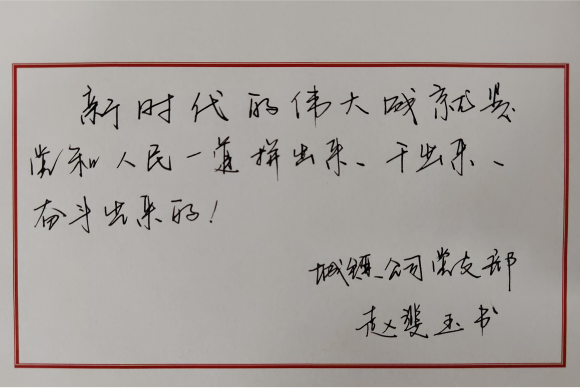 新时代的伟大成就是
党和人民一道拼出来、干出来、
奋斗出来的！
城镇公司党支部
赵斐玉书